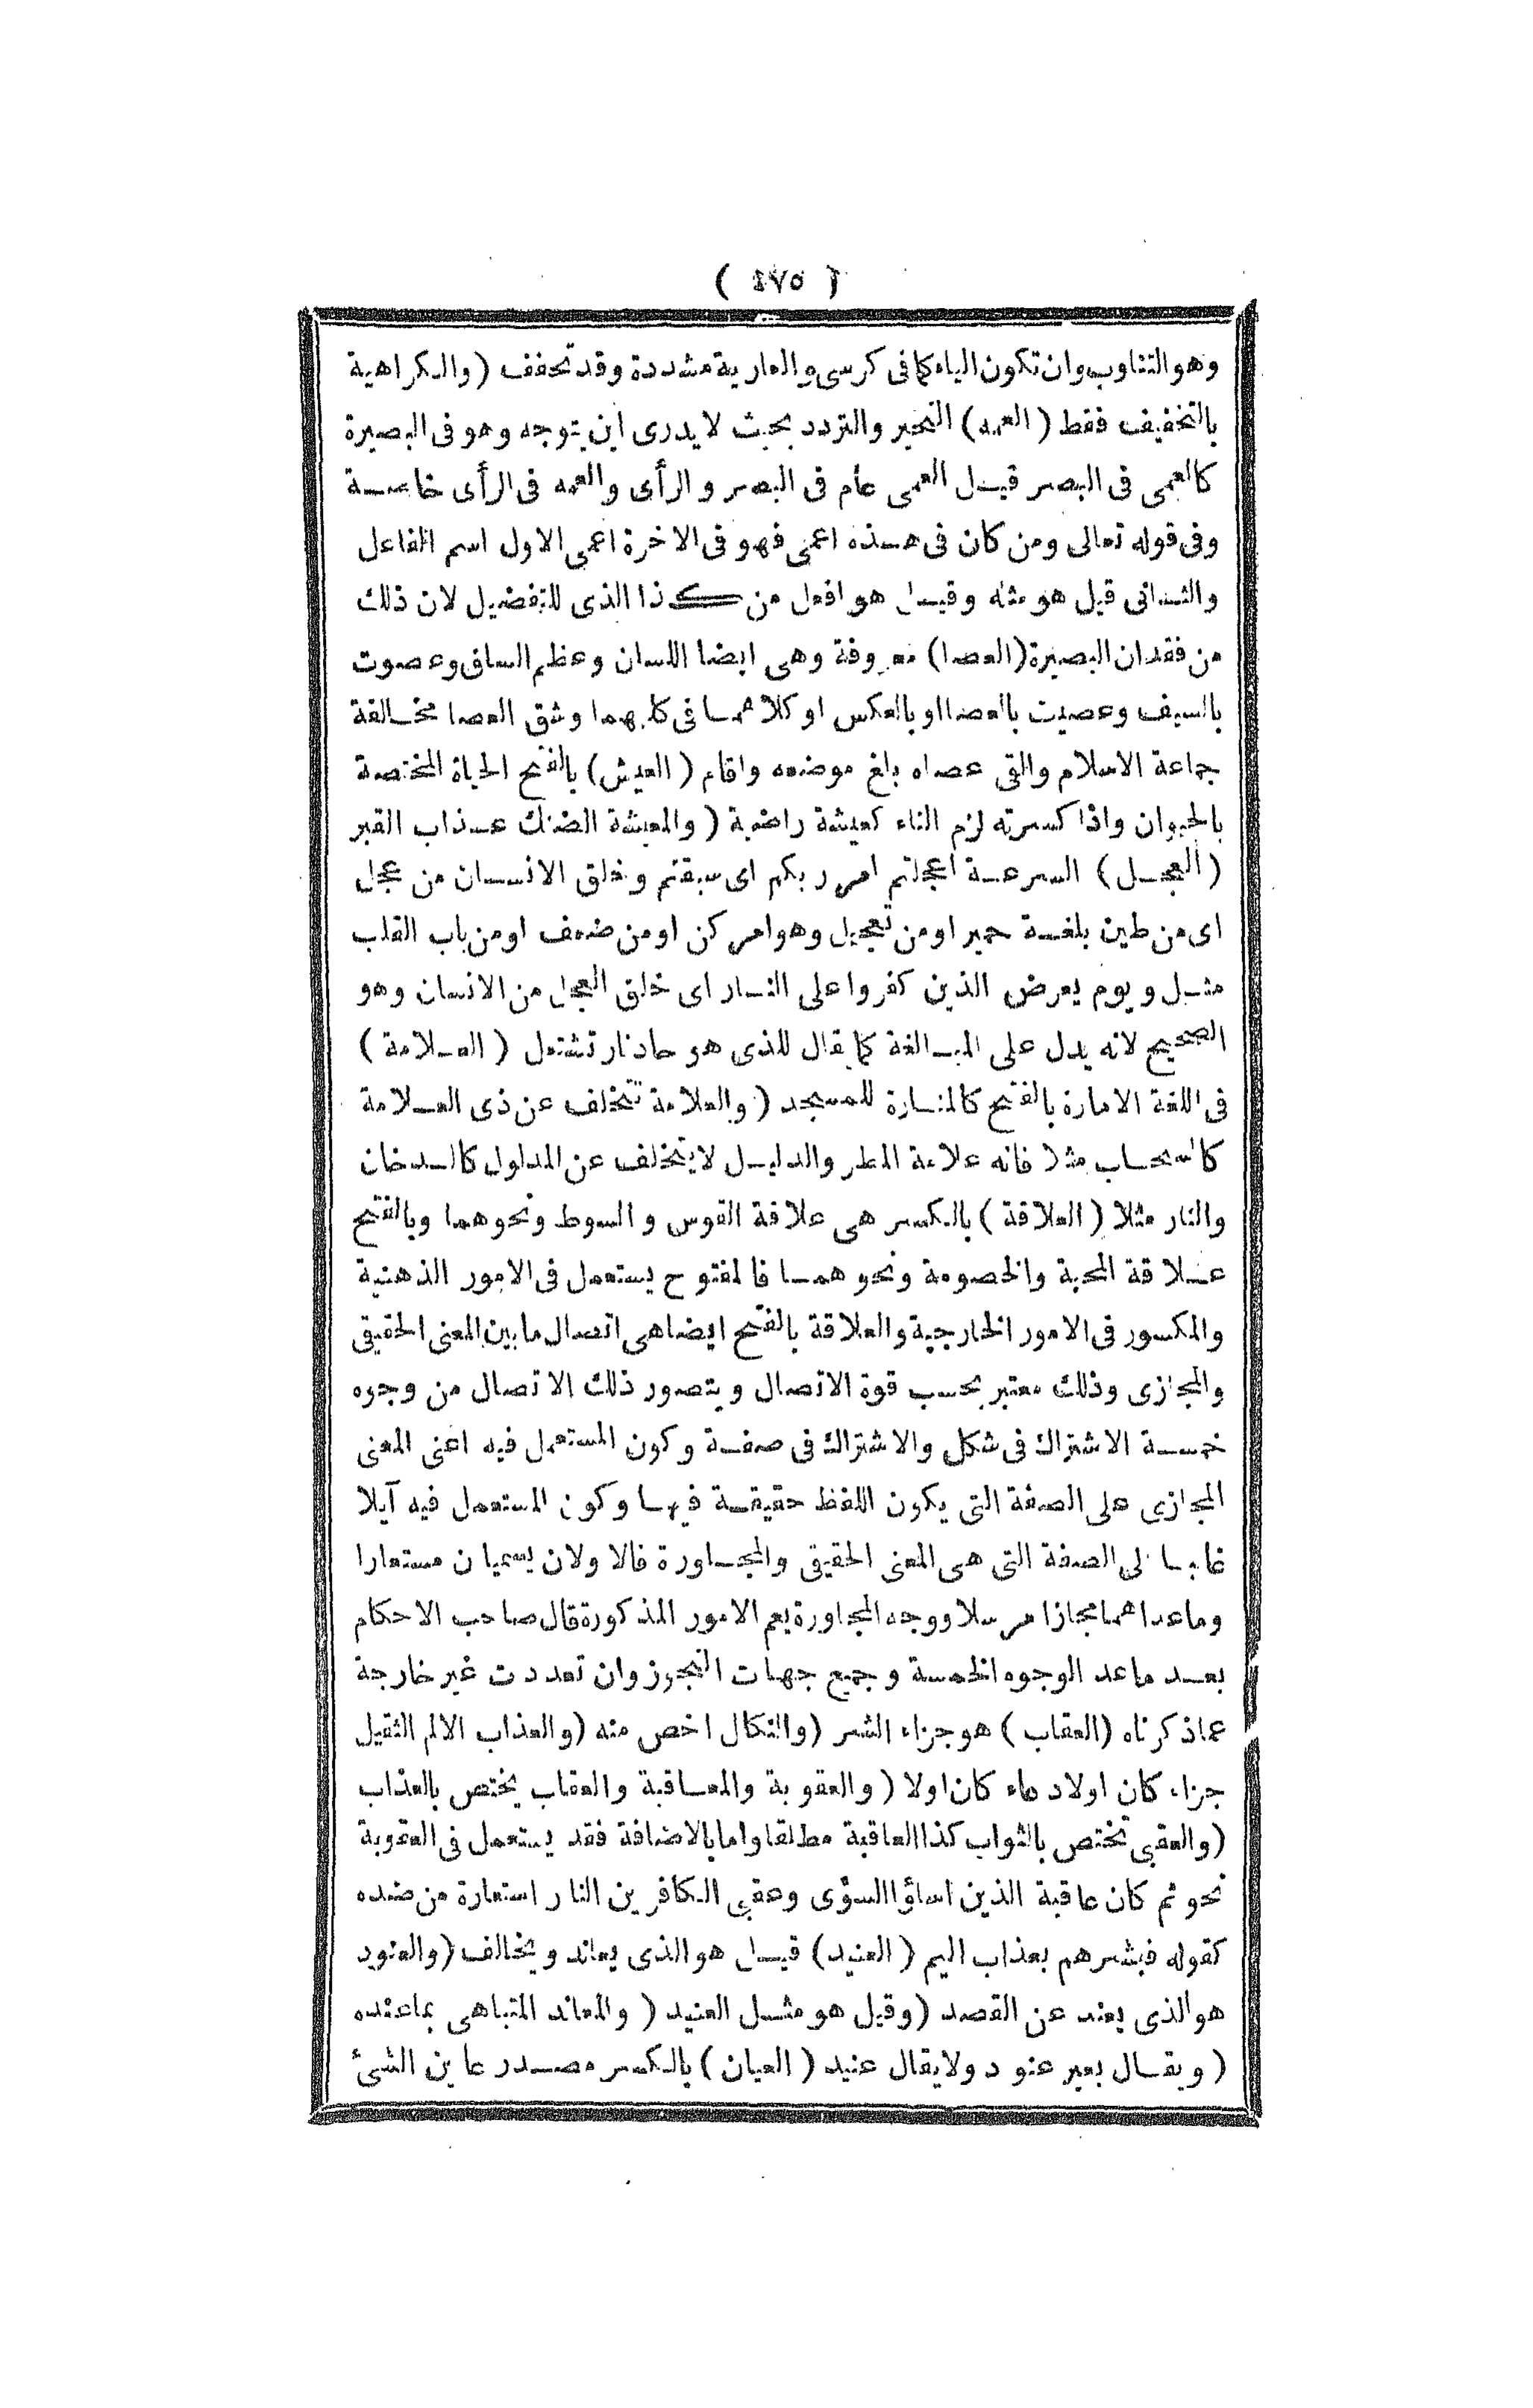 ( ٤٧٥ )
وهو التناوب وان تكون الياء كما فى كرسى والعارية مشددة وقد تخفف ( والكراهية
بالتخفيف فقط ( العمه ) التحير والتردد بحيث لا يدرى اين يتوجه وهو فى البصيرة
كالعمى فى البصر قيل العمى عام فى البصر والرأى والعمه فى الرأى خاصة
وفى قوله تعالى ومن كان فى هذه اعمى فهو فى الاخرة اعمى الاول اسم الفاعل
والثانى قيل هو مثله وقيل هو افعل من كذا الذى للتفضيل لان ذلك
من فقدان البصيرة ( العصا ) معروفة وهى ايضا اللسان وعظم الساق وعصوت
بالسيف وعصيت بالعصا او بالعكس او كلاهما فى كليهما وشق العصا مخالفة
جماعة الاسلام والقى عصاه بلغ موضعه واقام ( العيش ) بالفتح الحياة المختصة
بالحيوان واذا كسرته لزم التاء كعيشة راضية ( والمعيشة الضنك عذاب القبر
( العجل ) السرعة اعجلتم امر ربكم اى سبقتم وخلق الانسان من عجل
اى من طين بلغة حمير او من تعجيل وهو امر كن او من ضعف او من باب القلب
مثل ويوم يعرض الذين كفروا على النار اى خلق العجل من الانسان وهو
الصحيح لانه يدل على المبالغة كما يقال للذى هو حاد نار تشتعل ( العلامة )
فى اللغة الامارة بالفتح كالمنارة للمسجد ( والعلامة تتخلف عن ذى العلامة
كالسحاب مثلا فانه علامة المطر والدليل لا يتخلف عن المدلول كالدخان
والنار مثلا ( العلاقة ) بالكسر هى علاقة القوس والسوط ونحوهما وبالفتح
علاقة المحبة والخصومة ونحوهما فالمفتوح يستعمل فى الامور الذهنية
والمكسور فى الامور الخارجية والعلاقة بالفتح ايضا هى اتصال ما بين المعنى الحقيقى
والمجازى وذلك معتبر بحسب قوة الاتصال ويتصور ذلك الاتصال من وجوه
خمسة الاشتراك فى شكل والاشتراك فى صفة وكون المستعمل فيه اعنى المعنى
المجازى على الصفة التى يكون اللفظ حقيقة فيها وكون المستعمل فيه آيلا
غالبا الى الصفة التى هى المعنى الحقيقى والمجاورة فالاولان يسميان مستعارا
وما عداهما مجازا مرسلا ووجه المجاورة يعم الامور المذكورة قال صاحب الاحكام
بعد ما عد الوجوه الخمسة وجميع جهات التجوز وان تعددت غير خارجة
عما ذكرناه ( العقاب ) هو جزاء الشر ( والنكال اخص منه ( والعذاب الالم الثقيل
جزاء كان اولا دماء كان اولا ( والعقوبة والمعاقبة والعقاب يختص بالعذاب
( والعقبى تختص بالثواب كذا العاقبة مطلقا واما بالاضافة فقد يستعمل فى العقوبة
نحو ثم كان عاقبة الذين اساؤا السؤى وعقبى الكافرين النار استعارة من ضده
كقوله فبشرهم بعذاب اليم ( العنيد ) قيل هو الذى يعاند ويخالف ( والعنود
هو الذى يعند عن القصد ( وقيل هو مثل العنيد ( والمعاند المتباهى بما عنده
( ويقال بعير عنود ولا يقال عنيد ( العيان ) بالكسر مصدر عاين الشئ